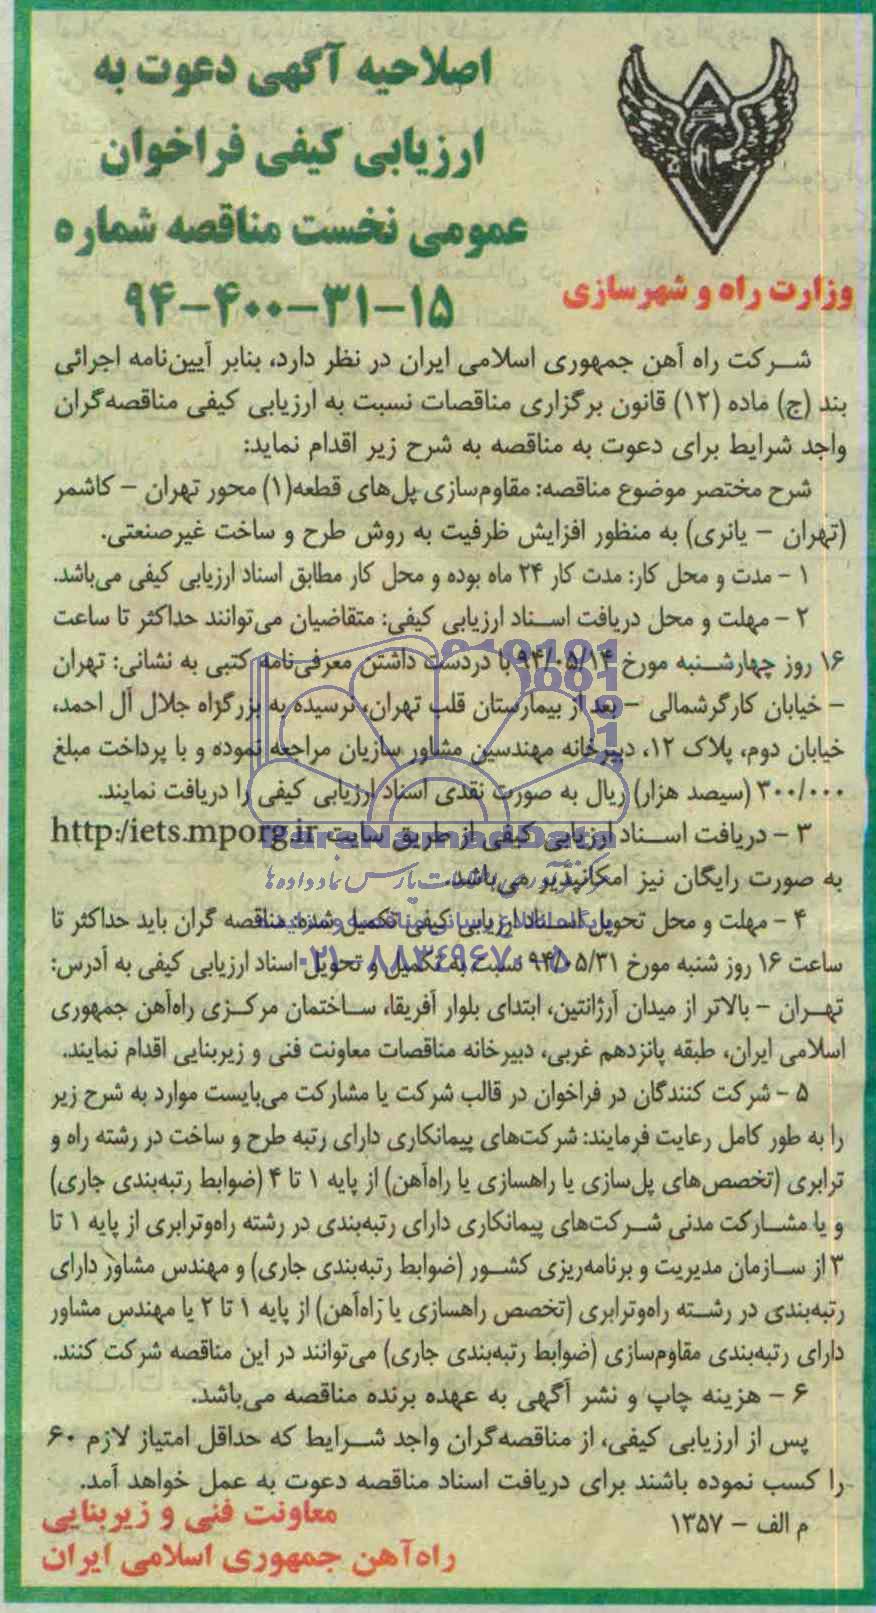 اصلاحیه آگهی دعوت به
ارزیابی کیفی فراخوان
عمومی نخست مناقصه شماره
۹۴-۴۰۰-۳۱-۱۵
وزارت راه و شهرسازی
شرکت راه آهن جمهوری اسلامی ایران در نظر دارد، بنابر آیین‌نامه اجرائی
بند (ج) ماده (۱۲) قانون برگزاری مناقصات نسبت به ارزیابی کیفی مناقصه‌گران
واجد شرایط برای دعوت به مناقصه به شرح زیر اقدام نماید:
شرح مختصر موضوع مناقصه: مقاوم‌سازی پل‌های قطعه(۱) محور تهران – کاشمر
(تهران – یاتری) به منظور افزایش ظرفیت به روش طرح و ساخت غیرصنعتی.
۱ – مدت و محل کار: مدت کار ۲۴ ماه بوده و محل کار مطابق اسناد ارزیابی کیفی می‌باشد.
۲ – مهلت و محل دریافت اسناد ارزیابی کیفی: متقاضیان می‌توانند حداکثر تا ساعت
۱۶ روز چهارشنبه مورخ ۹۴/۰۵/۱۴ با دردست داشتن معرفی‌نامه کتبی به نشانی: تهران
– خیابان کارگرشمالی – بعد از بیمارستان قلب تهران، نرسیده به بزرگراه جلال آل احمد،
خیابان دوم، پلاک ۱۲، دبیرخانه مهندسین مشاور سازیان مراجعه نموده و با پرداخت مبلغ
۳۰۰/۰۰۰ (سیصد هزار) ریال به صورت نقدی اسناد ارزیابی کیفی را دریافت نمایند.
۳ – دریافت اسناد ارزیابی کیفی از طریق سایت http:/iets.mporg.ir
به صورت رایگان نیز امکانپذیر می‌باشد.
۴ – مهلت و محل تحویل اسناد ارزیابی کیفی تکمیل شده: مناقصه گران باید حداکثر تا
ساعت ۱۶ روز شنبه مورخ ۹۴/۰۵/۳۱ نسبت به تکمیل و تحویل اسناد ارزیابی کیفی به آدرس:
تهران – بالاتر از میدان آرژانتین، ابتدای بلوار آفریقا، ساختمان مرکزی راه‌آهن جمهوری
اسلامی ایران، طبقه پانزدهم غربی، دبیرخانه مناقصات معاونت فنی و زیربنایی اقدام نمایند.
۵ – شرکت کنندگان در فراخوان در قالب شرکت یا مشارکت می‌بایست موارد به شرح زیر
را به طور کامل رعایت فرمایند: شرکت‌های پیمانکاری دارای رتبه طرح و ساخت در رشته راه و
ترابری (تخصص‌های پل‌سازی یا راهسازی یا راه‌آهن) از پایه ۱ تا ۴ (ضوابط رتبه‌بندی جاری)
و یا مشارکت مدنی شرکت‌های پیمانکاری دارای رتبه‌بندی در رشته راه‌وترابری از پایه ۱ تا
۳ از سازمان مدیریت و برنامه‌ریزی کشور (ضوابط رتبه‌بندی جاری) و مهندس مشاور دارای
رتبه‌بندی در رشته راه‌وترابری (تخصص راهسازی یا راه‌آهن) از پایه ۱ تا ۲ یا مهندس مشاور
دارای رتبه‌بندی مقاوم‌سازی (ضوابط رتبه‌بندی جاری) می‌توانند در این مناقصه شرکت کنند.
۶ – هزینه چاپ و نشر آگهی به عهده برنده مناقصه می‌باشد.
پس از ارزیابی کیفی، از مناقصه‌گران واجد شرایط که حداقل امتیاز لازم ۶۰
را کسب نموده باشند برای دریافت اسناد مناقصه دعوت به عمل خواهد آمد.
م الف – ۱۳۵۷
معاونت فنی و زیربنایی
راه‌آهن جمهوری اسلامی ایران